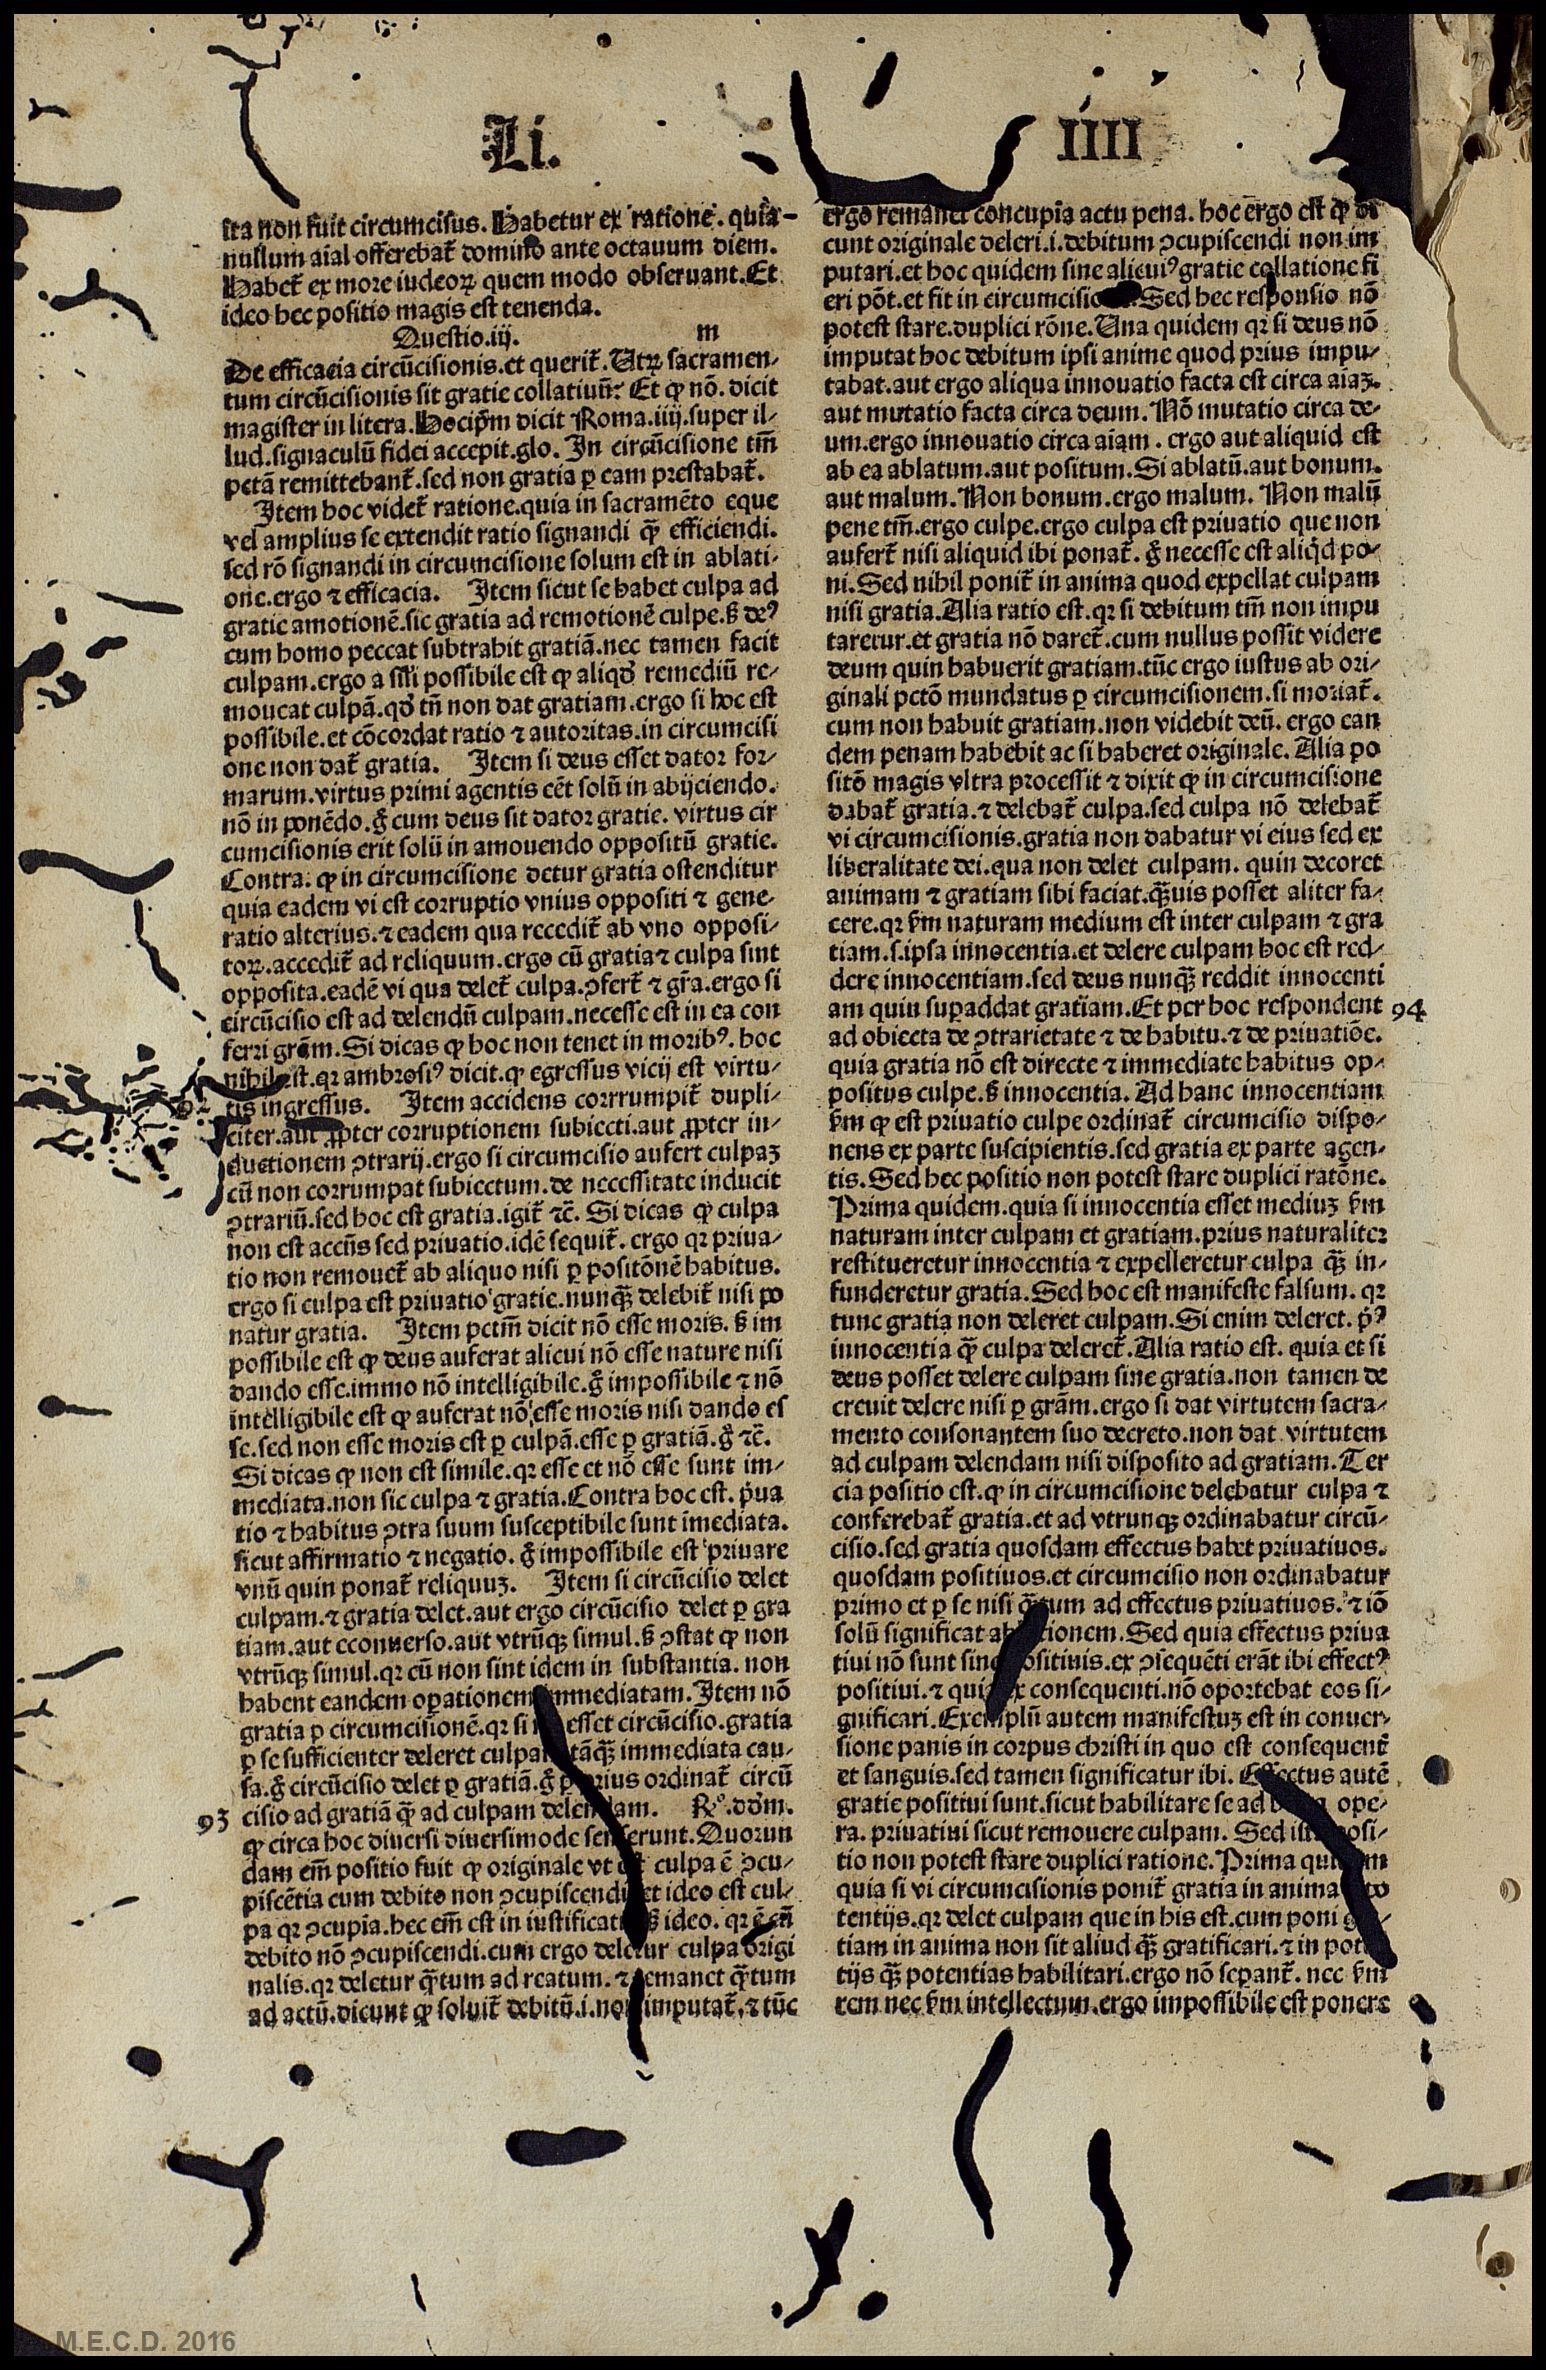 Li.
IIII
sta non fuit circumcisus. Habetur ex ratione. quia
nullum aīal offerebat̃ domino ante octauum diem.
Habet̃ ex more iudeoꝝ quem modo obseruant. Et
ideo hec positio magis est tenenda.
Questio.iij. m
De efficacia circũcisionis. et querit̃. Utꝝ sacramen-
tum circũcisionis sit gratie collatiuũ. Et ꝙ nō. dicit
magister in litera. Hocip̃m dicit Roma.iiij. super il-
lud. signaculũ fidei accepit. glo. In circũcisione tm̃
pctā remittebant̃. sed non gratia ꝑ eam prestabat̃.
Item hoc videt̃ ratione. quia in sacramēto eque
vel amplius se extendit ratio signandi ꝙ̃ efficiendi.
sed rō signandi in circumcisione solum est in ablati-
one. ergo ⁊ efficacia. Item sicut se habet culpa ad
gratie amotionē. sic gratia ad remotionē culpe. s̃ deꝰ
cum homo peccat subtrahit gratiā. nec tamen facit
culpam. ergo a sil̃i possibile est ꝙ aliqd̃ remediũ re-
moueat culpā. qd̃ tñ non dat gratiam. ergo si hoc est
possibile. et cōcordat ratio ⁊ autoritas. in circumcisi
one non dat̃ gratia. Item si deus esset dator for-
marum. virtus primi agentis eēt solũ in abijciendo.
nō in ponēdo. g̃ cum deus sit dator gratie. virtus cir
cumcisionis erit solũ in amouendo oppositũ gratie.
Contra: ꝙ in circumcisione detur gratia ostenditur
quia eadem vi est corruptio vnius oppositi ⁊ gene-
ratio alterius. ⁊ eadem qua recedit̃ ab vno opposi-
toꝝ. accedit̃ ad reliquum. ergo cũ gratia ⁊ culpa sint
opposita. eadē vi qua delet̃ culpa. ꝯfert̃ ⁊ gr̃a. ergo si
circũcisio est ad delendũ culpam. necesse est in ea con
ferri grām. Si dicas ꝙ hoc non tenet in moribꝰ. hoc
nihil est. qꝛ ambrosiꝰ dicit. ꝙ egressus vicij est virtu-
tis ingressus. Item accidens corrrumpit̃ dupli-
citer. aut ꝓpter corruptionem subiecti. aut ꝓpter in-
ductionem ꝯtrarij. ergo si circumcisio aufert culpaꝫ
cũ non corrumpat subiectum. de necessitate inducit
ꝯtrariũ. sed hoc est gratia. igit̃ ⁊c̃. Si dicas ꝙ culpa
non est accñs sed priuatio. idē sequit̃. ergo qꝛ priua-
tio non remouet̃ ab aliquo nisi ꝑ positōnē habitus.
ergo si culpa est priuatio gratie. nunꝙ̃ delebit̃ nisi po
natur gratia. Item pctm̃ dicit nō esse moris. s̃ im
possibile est ꝙ deus auferat alicui nō esse nature nisi
dando esse. immo nō intelligibile. g̃ impossibile ⁊ nō
intelligibile est ꝙ auferat nō esse moris nisi dando es
se. sed non esse moris est ꝑ culpā. esse ꝑ gratiā. g̃ ⁊c̃.
Si dicas ꝙ non est simile. qꝛ esse et nō esse sunt im-
mediata. non sic culpa ⁊ gratia. Contra hoc est. p̃ua
tio ⁊ habitus ꝯtra suum susceptibile sunt imediata.
sicut affirmatio ⁊ negatio. g̃ impossibile est priuare
vnũ quin ponat̃ reliquuꝫ. Item si circũcisio delet
culpam. ⁊ gratia delet. aut ergo circũcisio delet ꝑ gra
tiam. aut econuerso. aut vtrũqꝫ simul. s̃ ꝯstat ꝙ non
vtrũqꝫ simul. qꝛ cũ non sint idem in substantia. non
habent eandem oꝑationem immediatam. Item nō
gratia ꝑ circumcisionē. qꝛ si esset circũcisio. gratia
ꝑ se sufficienter deleret culpam tāꝙ̃ immediata cau-
sa. g̃ circũcisio delet ꝑ gratiā. g̃ prius ordinat̃ circũ
93 cisio ad gratiā ꝙ̃ ad culpam delendam. Rº. dd̃m.
ꝙ circa hoc diuersi diuersimode senserunt. Quorun
dam em̃ positio fuit ꝙ originale vt est culpa ē ꝯcu-
piscētia cum debito non ꝯcupiscendi. et ideo est cul-
pa qꝛ ꝯcupīa. hec em̃ est in iustificatis s̃ ideo. qꝛ ē cũ
debito nō ꝯcupiscendi. cum ergo deletur culpa origi
nalis. qꝛ deletur ꝙ̃tum ad reatum. ⁊ remanet ꝙ̃tum
ad actũ. dicunt ꝙ soluit̃ debitũ. i. non imputat̃, ⁊ tũc
ergo remanet concupīa actu pena. hoc ergo est ꝙ di
cunt originale deleri. i. debitum ꝯcupiscendi non im
putari. et hoc quidem sine alicuiꝰ gratie collatione fi
eri pōt. et fit in circumcisione. Sed hec responsio nō
potest stare. duplici rōne. Una quidem qꝛ si deus nō
imputat hoc debitum ipsi anime quod prius impu-
tabat. aut ergo aliqua innouatio facta est circa aīaꝫ.
aut mutatio facta circa deum. Nō mutatio circa de-
um. ergo innouatio circa aīam. ergo aut aliquid est
ab ea ablatum. aut positum. Si ablatũ. aut bonum.
aut malum. Non bonum. ergo malum. Non malũ
pene tm̃. ergo culpe. ergo culpa est priuatio que non
aufert̃ nisi aliquid ibi ponat̃. g̃ necesse est aliq̃d po-
ni. Sed nihil ponit̃ in anima quod expellat culpam
nisi gratia. Alia ratio est. qꝛ si debitum tm̃ non impu
taretur. et gratia nō daret̃. cum nullus possit videre
deum quin habuerit gratiam. tũc ergo iustus ab ori-
ginali pctō mundatus ꝑ circumcisionem. si moriat̃.
cum non habuit gratiam. non videbit deũ. ergo ean
dem penam habebit ac si haberet originale. Alia po
sitō magis vltra processit ⁊ dixit ꝙ in circumcisione
dabat̃ gratia. ⁊ delebat̃ culpa. sed culpa nō delebat̃
vi circumcisionis. gratia non dabatur vi eius sed ex
liberalitate dei. qua non delet culpam. quin decoret
animam ⁊ gratiam sibi faciat. ꝙ̃uis posset aliter fa-
cere. qꝛ s̃m naturam medium est inter culpam ⁊ gra
tiam. s. ipsa innocentia. et delere culpam hoc est red-
dere innocentiam. sed deus nunꝙ̃ reddit innocenti
am quin suꝑaddat gratiam. Et per hoc respondent 94
ad obiecta de ꝯtrarietate ⁊ de habitu. ⁊ de priuatiōe.
quia gratia nō est directe ⁊ immediate habitus op-
positus culpe. s̃ innocentia. Ad hanc innocentiam
s̃m ꝙ est priuatio culpe ordinat̃ circumcisio dispo-
nens ex parte suscipientis. sed gratia ex parte agen-
tis. Sed hec positio non potest stare duplici ratōne.
Prima quidem. quia si innocentia esset mediuꝫ s̃m
naturam inter culpam et gratiam. prius naturaliter
restitueretur innocentia ⁊ expelleretur culpa ꝙ̃ in-
funderetur gratia. Sed hoc est manifeste falsum. qꝛ
tunc gratia non deleret culpam. Si enim deleret. p̃ꝰ
innocentia ꝙ̃ culpa deleret̃. Alia ratio est. quia et si
deus posset delere culpam sine gratia. non tamen de
creuit delere nisi ꝑ grām. ergo si dat virtutem sacra-
mento consonantem suo decreto. non dat virtutem
ad culpam delendam nisi disposito ad gratiam. Ter
cia positio est. ꝙ in circumcisione delebatur culpa ⁊
conferebat̃ gratia. et ad vtrunqꝫ ordinabatur circũ-
cisio. sed gratia quosdam effectus habet priuatiuos.
quosdam positiuos. et circumcisio non ordinabatur
primo et ꝑ se nisi ꝙ̃tum ad effectus priuatiuos. ⁊ iō
solũ significat ablationem. Sed quia effectus priua
tiui nō sunt sine positiuis. ex ꝯsequēti erāt ibi effectꝰ
positiui. ⁊ quia ex consequenti. nō oportebat eos si-
gnificari. Exemplũ autem manifestuꝫ est in conuer-
sione panis in corpus christi in quo est consequent̃
et sanguis. sed tamen significatur ibi. Effectus autē
gratie positiui sunt. sicut habilitare se ad bona ope-
ra. priuatiui sicut remouere culpam. Sed ista posi-
tio non potest stare duplici ratione. Prima quidem
quia si vi circumcisionis ponit̃ gratia in anima
tentijs. qꝛ delet culpam que in his est. cum poni
tiam in anima non sit aliud ꝙ̃ gratificari. ⁊ in poten
tijs ꝙ̃ potentias habilitari. ergo nō seꝑant̃. nec s̃m
rem nec s̃m intellectum. ergo impossibile est ponere
M.E.C.D. 2016